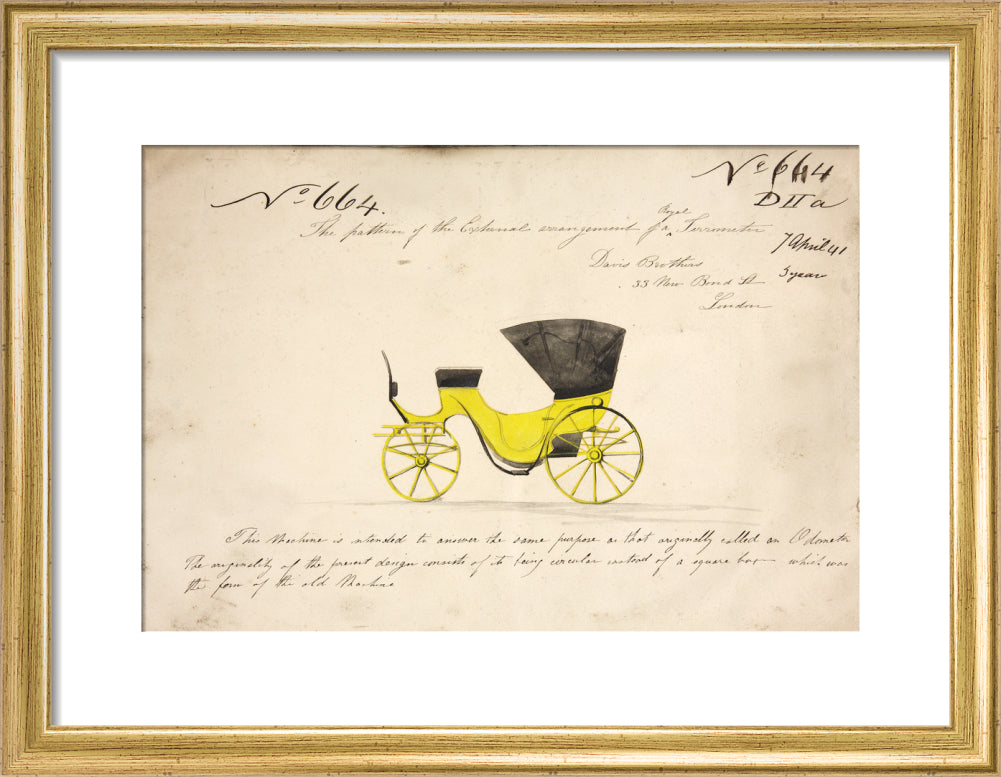 No 664.
No 664
D II a
The pattern of the External arrangement of a Royal Terrometer
7 April 41
3 year
Davis Brothers
33 New Bond St
London
This Machine is intended to answer the same purpose as that originally called an Odometer
The originality of the present design consists of its being circular instead of a square box which was
the form of the old Machine